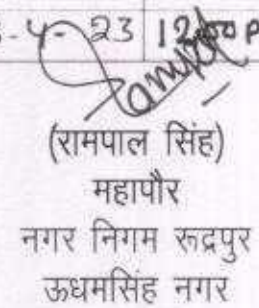 -4-23 12:00 P
Rampal
(रामपाल सिंह)
महापौर
नगर निगम रूद्रपुर
ऊधमसिंह नगर